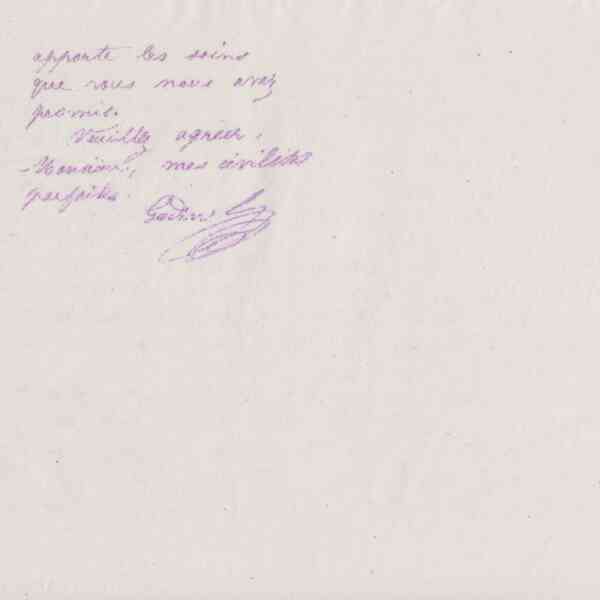 apporte les soins
que vous nous avez
promis.
Veuillez agréer,
Monsieur, mes civilités
parfaites.